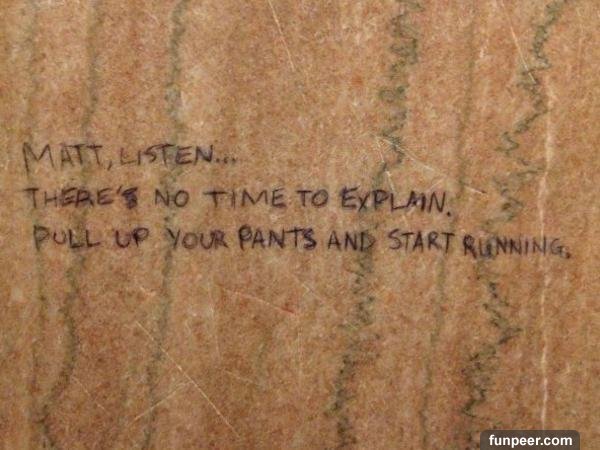 MATT, LISTEN...
THERE'S NO TIME TO EXPLAIN.
PULL UP YOUR PANTS AND START RUNNING.
funpeer.com